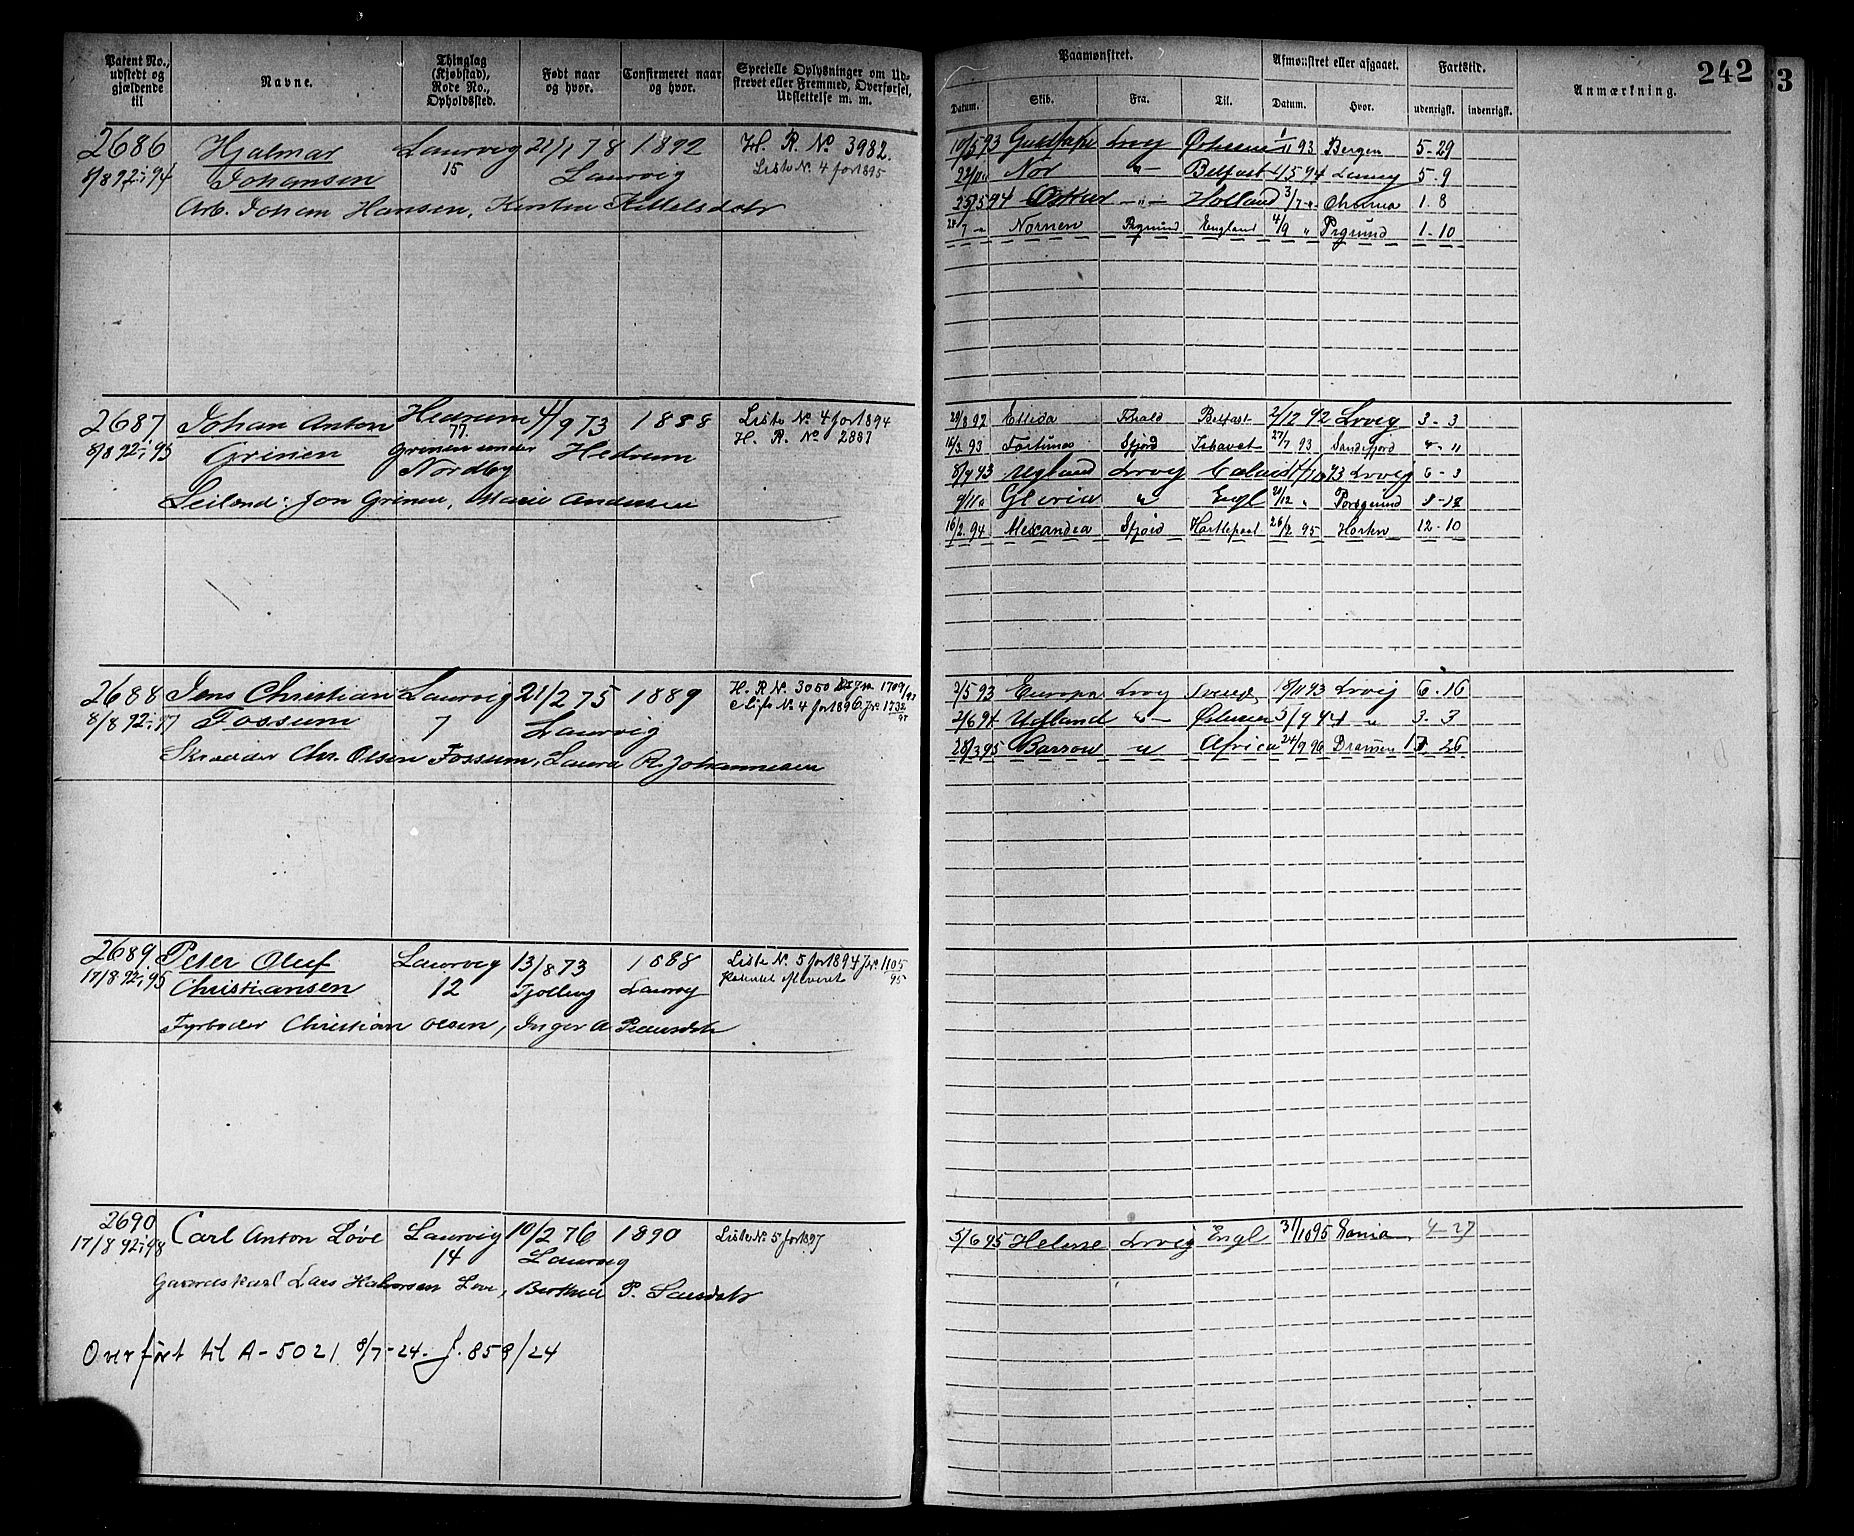 Patent No., udstedt og gjældende til
Navne.
Thinglag (Kjøbstad), Rode No., Opholdssted.
Født naar og hvor.
Confirmeret naar og hvor.
Specielle Oplysninger om Udstrevet eller Fremmed, Overførsel, Udslettelse m. m.
Paamønstret.
Afmønstret eller afgaaet.
Fartstid.
242
3
Datum. Skib. Fra. Til. Datum. Hvor. udenrigsk. indenrigsk. Anmærkning.
2686 Hjalmar Laurvig 21/1 78 1892 H. R. No 3982.
8/8 92 i 94 Johansen 15 Laurvig Liste No. 4 for 1895
Arb. Johan Hansen, Kirstine Kittelsdatr
10/5 93 Lrvg 93 Bergen 5-29
Nor " Belfast 94 5-9
94 Oskar -"- Holland 3/7 " 1. 8
7 " Nornen Prgrund England 4/9 " Prgrund 1-10
2687 Johan Anton Hedrum 4/9 73 1888 Liste No. 4 for 1894
8/8 92 i 95 Grinen 77. Grinen under Nordby Hedrum H. R. No 2881
Leilend: Jon Grinen, Marie Andersen
29/8 92 Ellida Belfast 2/12 92 Lrvig 3-3
93 Fortunas Sfjord Ishavet 27/7 93 Sandefjord 4-11
8/9 93 Ugland Lrvig 93 Lrvig 6-3
9/11 " Gloria " Engl 21/12 " Porsgrund
16/2. 94 Alexandra Sfjord Hartlepool 26/2 95 Horten 12-10
2688 Jens Christian Laurvig 21/2 75 1889 H. R. No. 3050 1709/93
8/8 92 i 97 Fossum 7 Laurvig No. 4 for 1896 Jr. 1732/97
Skrædder Chr. Olsen Fossum, Laura R. Johannesen
2/5 93 Europa Lrvg 18/11 93 Lrvig 6-16
2/6 94 Uffland " 5/9 94 " 3-3
28/3 95 Barrow " Africa 24/9 96 Drammen 17. 26
2689 Peter Oluf Laurvig 13/8 73 1888 Liste No. 5 for 1894 Jr. 1105/95
17/8 92 i 95 Christiansen 12 Tjølling Laurvig Patentet afleveret
Fyrbøder Christian Olsen, Inger A.
2690 Carl Anton Løve Laurvig 10/2 76 1890 Liste No. 5 for 1897
17/8 92 i 98 14 Laurvig
Lars Halvorsen Løve, P. Larsdatr
5/6 95 Helene Lrvig Engl 31/10 95 4-27
Overført til A-5021 8/7-24. J. 859/24